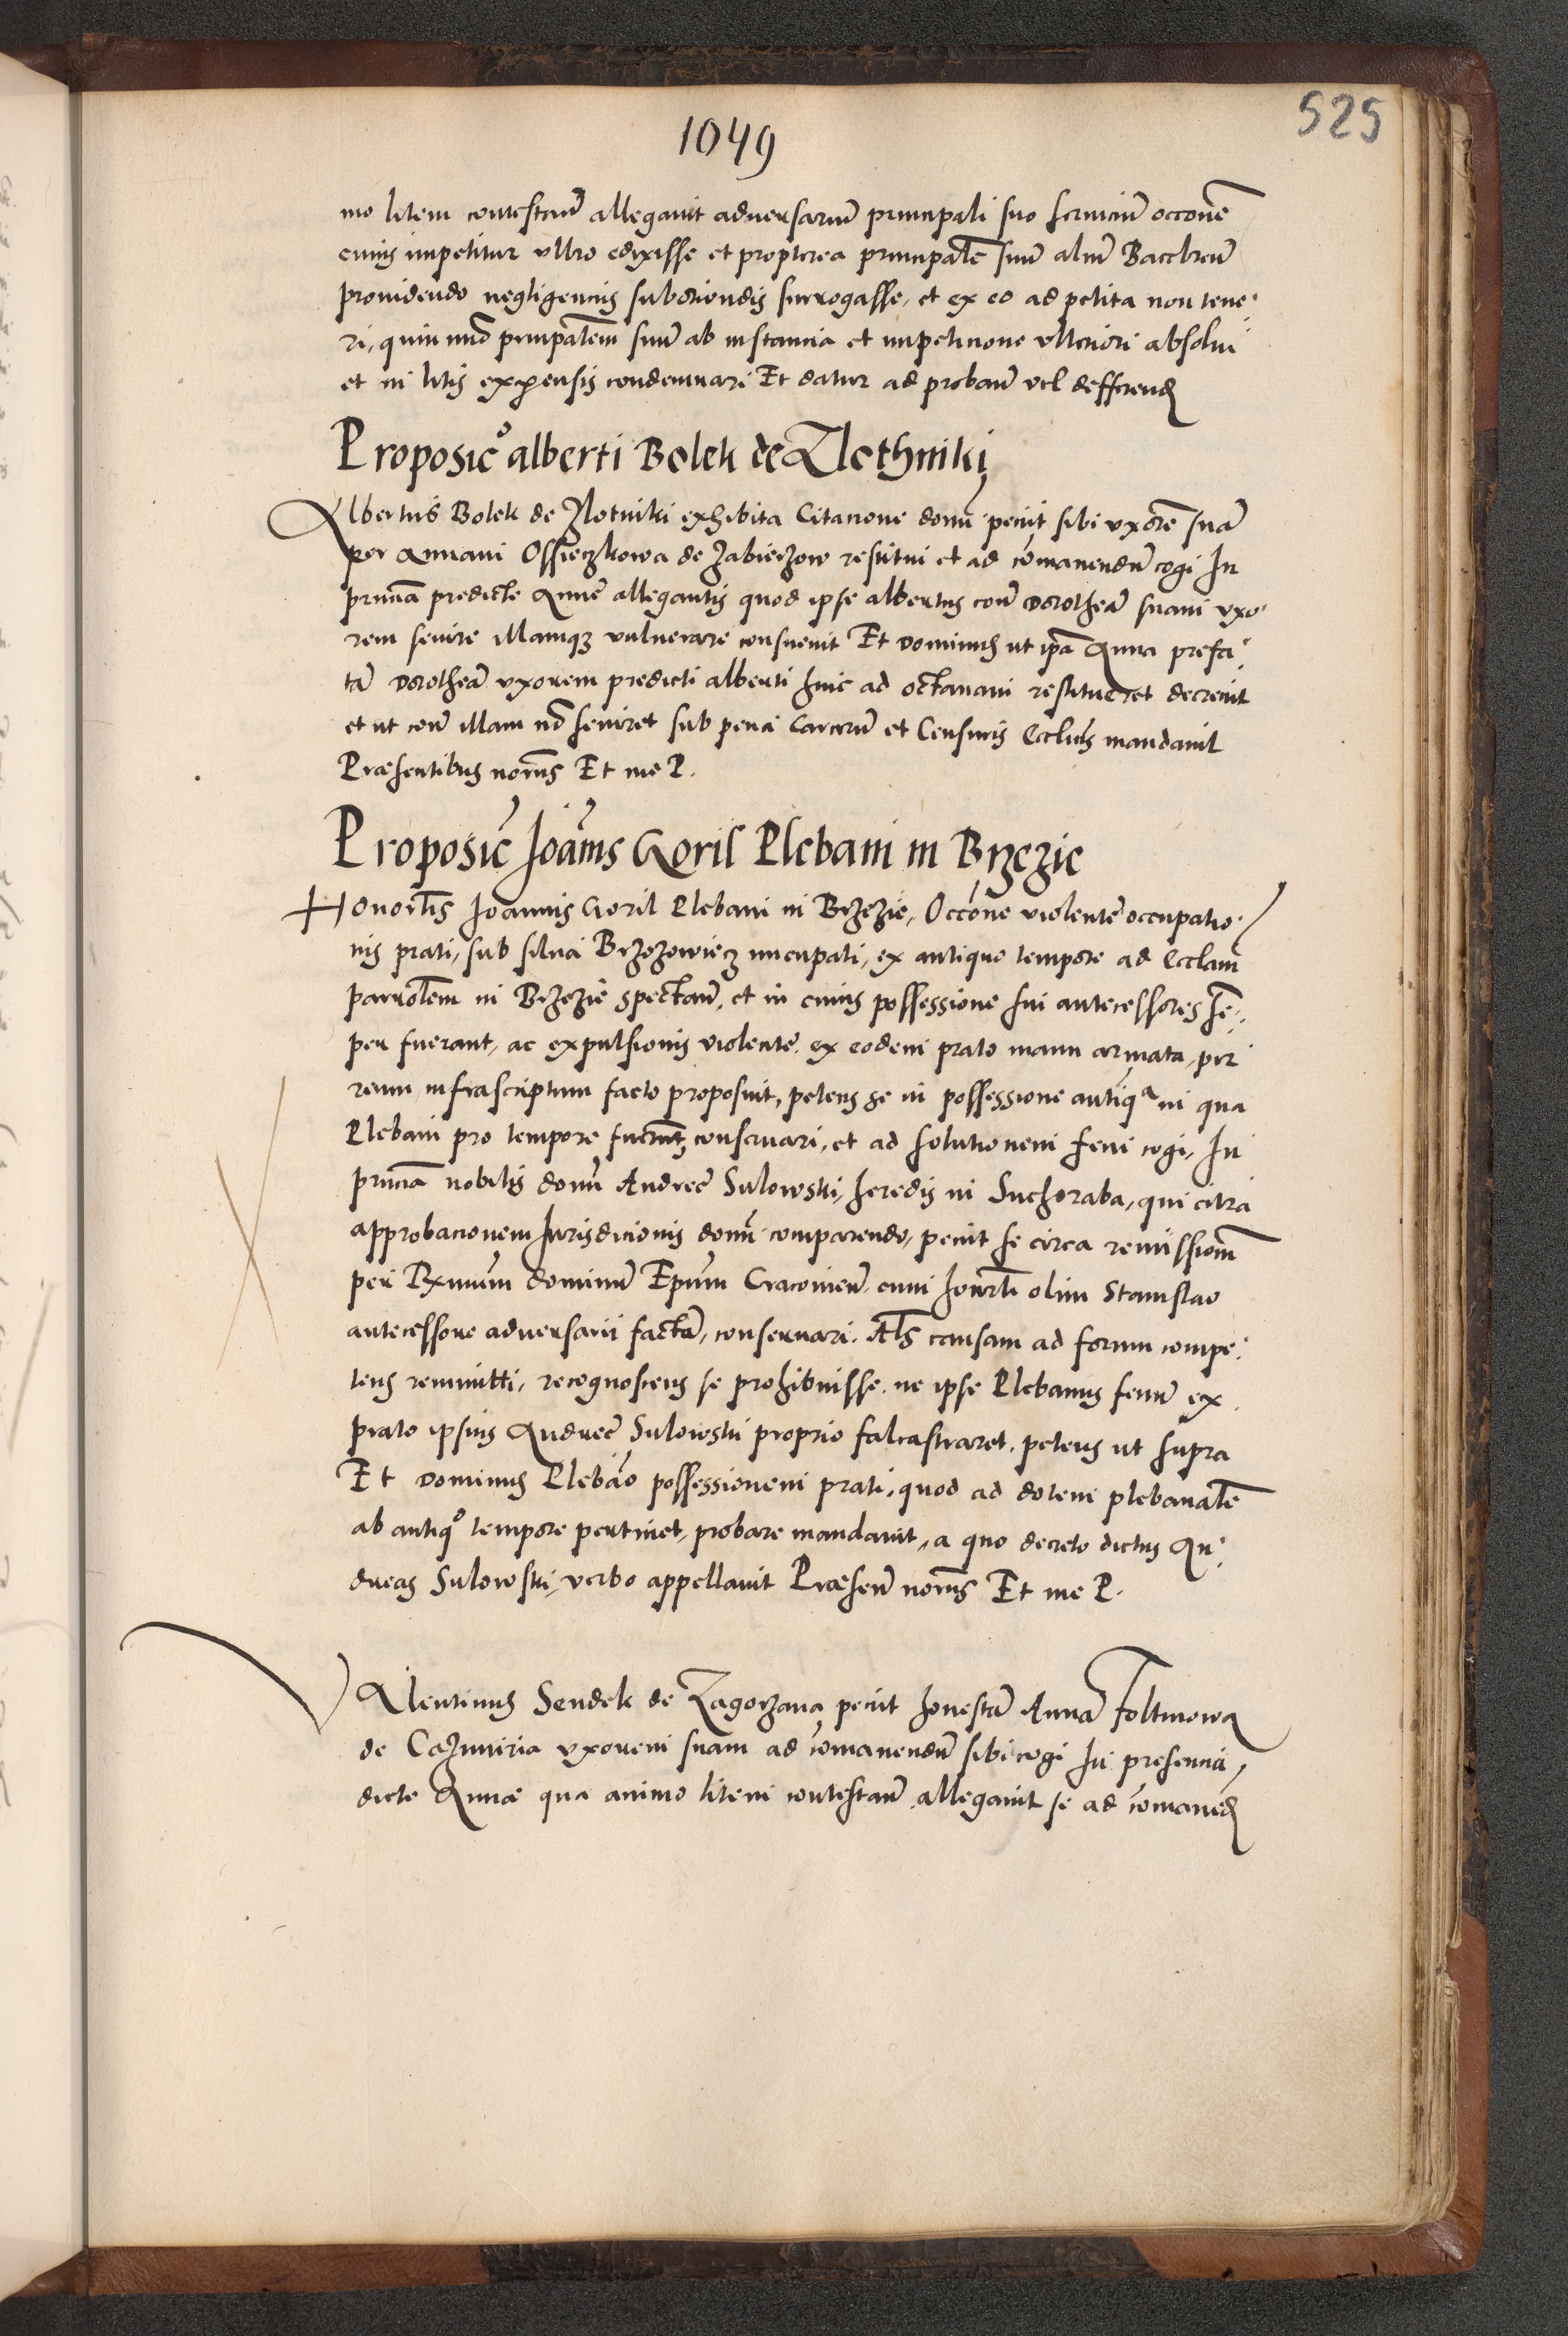 1049
525
mo litem contestan̄ allegavit adversariū principali suo serviciū occōne
cuius impetitur ultro edixisse et propterea principalē suū aliū Baccłreū
providendo negligenciis suboriendis surrogasse, et ex eo ad petita non tene
ri, quin imō principalem suū ab instancia et impeticione ulteriori absolvi
et in litis expensis condemnari Et datur ad proban̄ vel defferend
Proposicō alberti Bolek de Zlothniki
Albertus Bolek de Zlotniki exhibita Citacione domī peciit sibi uxorē suā
per Annam Ossieczkowa de Zabierzow restitui et ad cōmanendū cogi In
pn̄ciā predicte Anne allegantis quod ipse albertus con̄ Dorotheā suam uxo
rem sevire illamq; vulnerare consuevit Et Dominus ut ip̄a Anna prefa
tā Dorotheā uxorem predicti alberti hinc ad octavam restitueret decrevit
et ut con̄ illam nō seviret sub pena Carcerū et Censuris Ecclicis mandavit
Præsentibus norīis Et me P.
Proposic̄ Joānis Goril Plebani in Brzezie
Honorłis Joannis Goril Plebani in Brzezie, Occōne violentē occupatio
nis prati, sub silva Brzezowiecz nuncupati, ex antiquo tempore ad Ecclām
parrołem in Brzezie spectan̄, et in cuius possessione sui antecessores sē
per fuerant, ac expulsionis violentē ex eodem prato manu armata, per
reum infrascriptum facto proposuit, petens se in possessione antiqa in qua
Plebani pro tempore fuerunt, conservari, et ad solutionem feni cogi, In
pn̄ciā nobilis domī Andreē Sulowski, heredis in Suchoraba, qui citra
approbacionem Jurisdicionis domī comparendo, peciit se circa remissionē
per Rxmūm dominū Epūm Cracovien̄, cum honorłi olim Stanislao
antecessore adversarii factā, conservari. Als causam ad forum compe
tens remitti, recognoscens se prohibuisse, ne ipse Plebanus fenū ex
prato ipsius Andreē Sulowski proprio falcastraret, petens ut supra
Et Dominus Plebāo possessionem prati, quod ad dotem plebanałē
ab antiqo tempore pertinet, probare mandavit, a quo decreto dictus An
dreas Sulowski, verbo appellavit Præsen̄ norīis Et me P.
Valentinus Sendek de Zagorzana peciit honestā Annā Foltinowa
de Cazimiria uxorem suam ad cōmanendū sibi cogi In presencia
dicte Annæ qua animo litem contestan̄ allegavit se ad cōmanēd